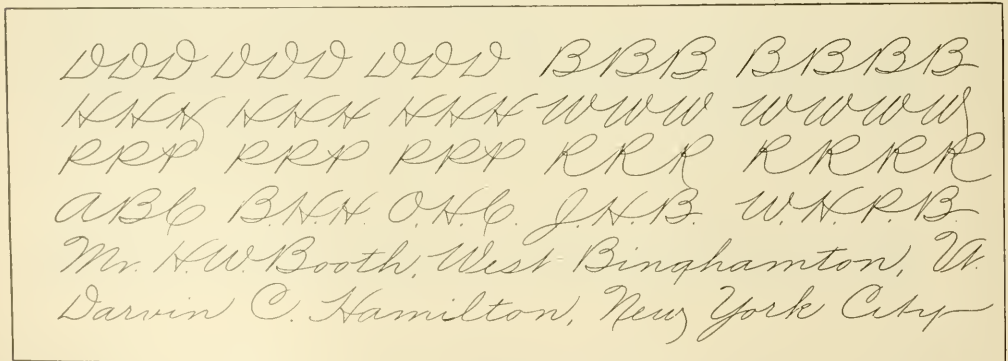 DDD DDD DDD BBB BBBB
HHH HHH HHH WWW WWWW
PPP PPP PPP RRR RRRR
ABC B.H.H. O.H.C. J.H.B. W.H.P.B.
Mr. H.W. Booth, West Binghamton, Vt.
Darwin C. Hamilton, New York City